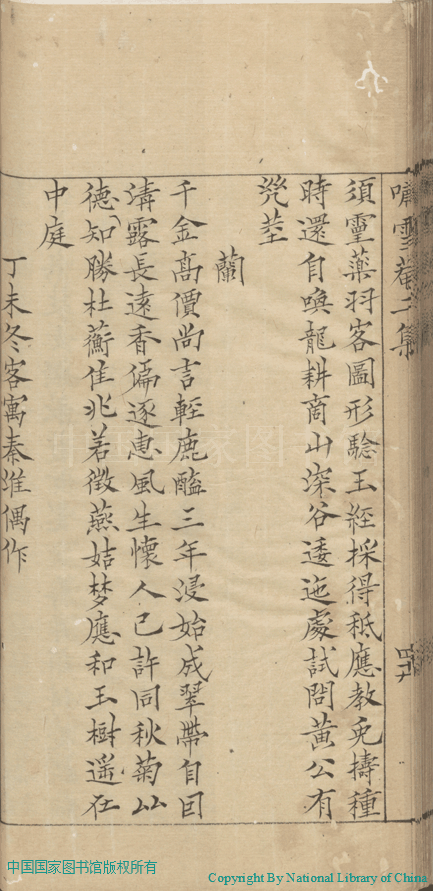 嘯雪菴二集
須靈藥羽客圖形騐玉經採得秪應教兎擣種
時還自喚龍耕商山深谷逶迤處試問黃公有
幾莖
蘭
千金高價尚言輕鹿醢三年浸始成翠帶自囙
淸露長遠香偏逐惠風生懷人已許同秋菊山
德知勝杜蘅佳兆若徵燕姞梦應和玉樹遥在
中庭
丁未冬客寓秦淮偶作
中国国家图书馆版权所有
Copyright By National Library of China